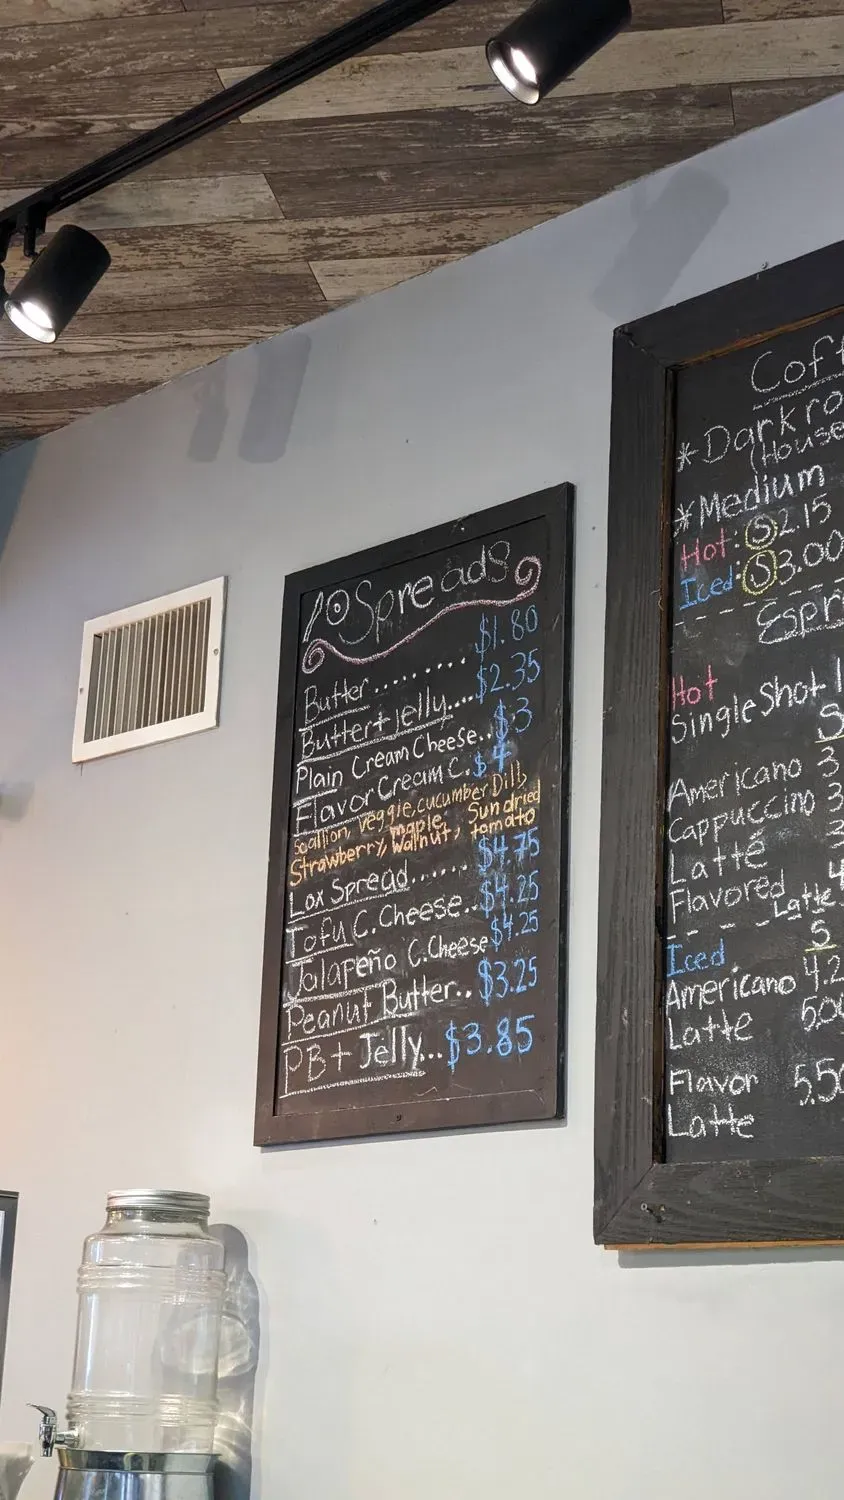 Spreads
Butter......... $1.80
Butter+jelly.... $2.35
Plain Cream Cheese.. $3
Flavor Cream C. $4
Scallion, veggie, cucumber Dill,
Strawberry, maple, Walnut, Sun dried tomato
Lox Spread...... $4.75
Tofu C. Cheese.. $4.25
Jalapeño C.Cheese $4.25
Peanut Butter.. $3.25
PB+ Jelly... $3.85
*Medium
Hot: S 2.15
Iced: S 3.00
Hot
Single Shot
S
Americano 3
Cappuccino 3
Latté 3
Flavored Latte
Iced S
Americano
Latte
Flavor
Latte